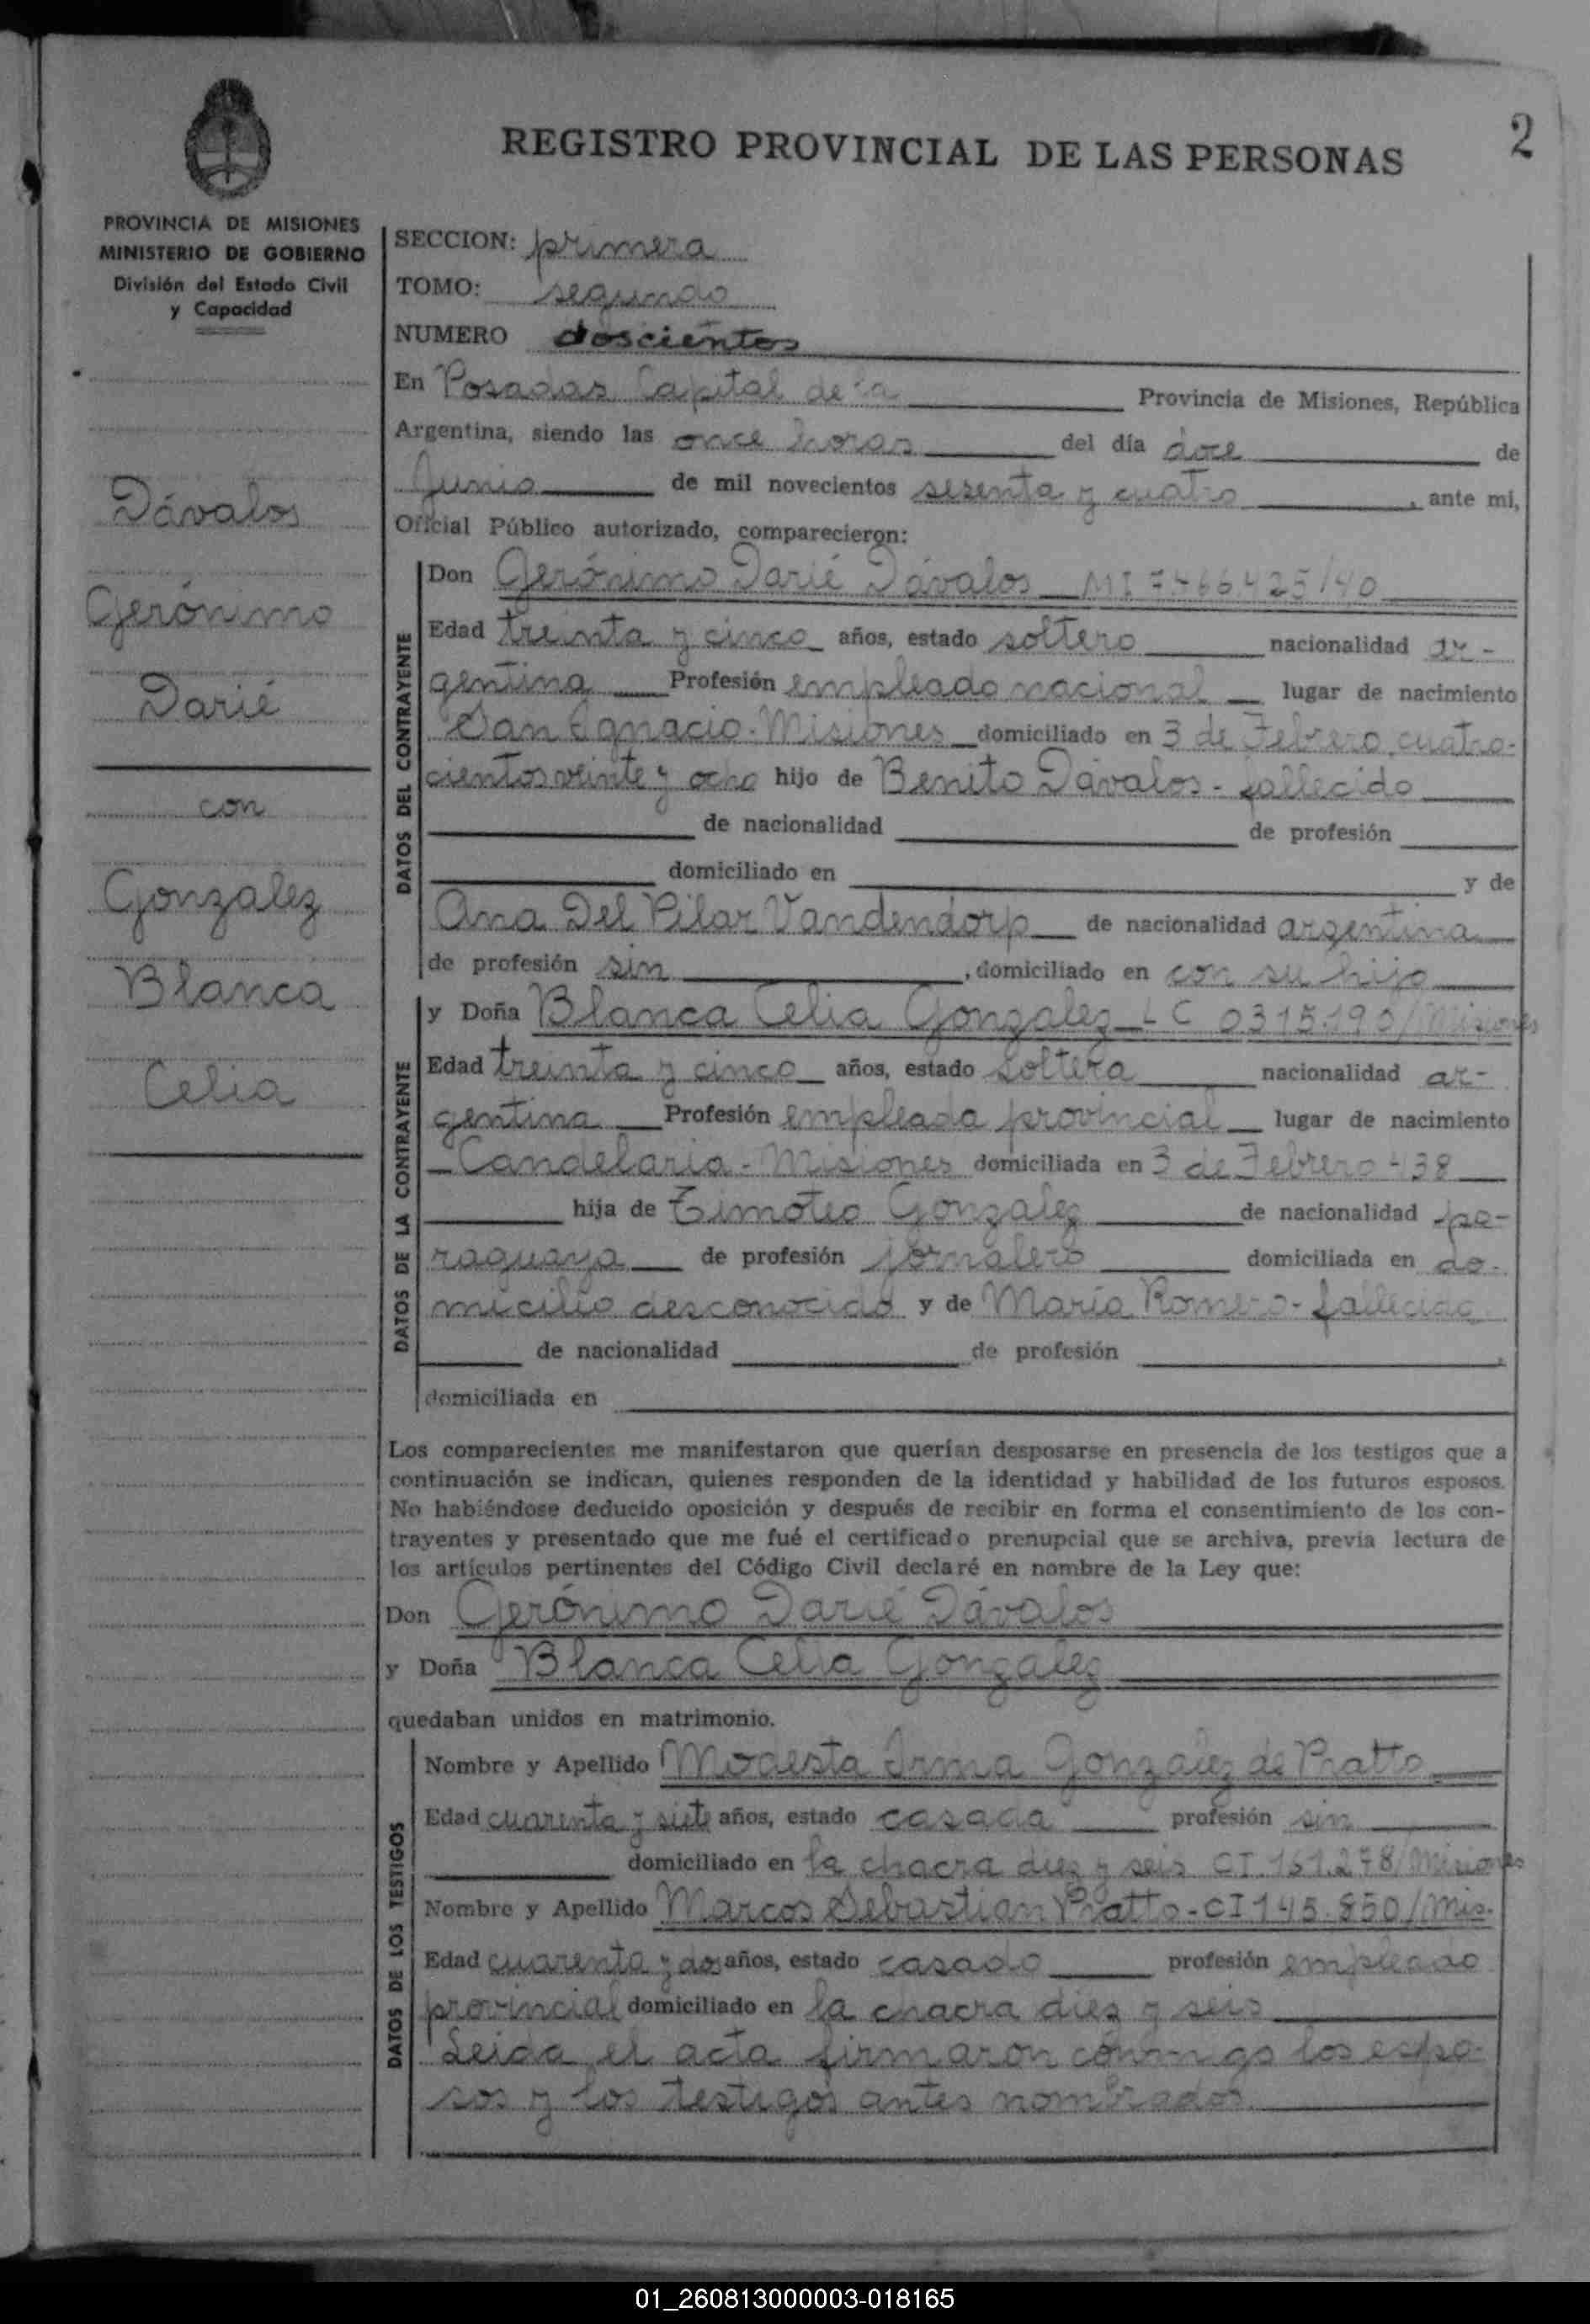 2
REGISTRO PROVINCIAL DE LAS PERSONAS
PROVINCIA DE MISIONES
MINISTERIO DE GOBIERNO
División del Estado Civil
y Capacidad
Dávalos
Gerónimo
Darié
con
Gonzalez
Blanca
Celia
SECCION: primera
TOMO: segundo
NUMERO doscientos
En Posadas Capital de la Provincia de Misiones, República
Argentina, siendo las once horas del día doce de
Junio de mil novecientos sesenta y cuatro, ante mi,
Oficial Público autorizado, comparecieron:
DATOS DEL CONTRAYENTE
Don Gerónimo Darié Dávalos MI 7.466.425/40
Edad treinta y cinco años, estado soltero nacionalidad ar-
gentina Profesión empleado nacional lugar de nacimiento
San Ignacio-Misiones domiciliado en 3 de Febrero cuatro-
cientos veinte y ocho hijo de Benito Dávalos - fallecido
de nacionalidad de profesión
domiciliado en y de
Ana Del Pilar Vandendorp de nacionalidad argentina
de profesión sin, domiciliado en con su hijo
DATOS DE LA CONTRAYENTE
y Doña Blanca Celia Gonzalez LC 0315.190/Misiones
Edad treinta y cinco años, estado soltera nacionalidad ar-
gentina Profesión empleada provincial lugar de nacimiento
Candelaria-Misiones domiciliada en 3 de Febrero 438
hija de Timoteo Gonzalez de nacionalidad pa-
raguaya de profesión jornalero domiciliada en do-
micilio desconocido y de María Romero - fallecida
de nacionalidad de profesión ,
domiciliada en
Los comparecientes me manifestaron que querían desposarse en presencia de los testigos que a
continuación se indican, quienes responden de la identidad y habilidad de los futuros esposos.
No habiéndose deducido oposición y después de recibir en forma el consentimiento de los con-
trayentes y presentado que me fué el certificado prenupcial que se archiva, previa lectura de
los artículos pertinentes del Código Civil declaré en nombre de la Ley que:
Don Gerónimo Darié Dávalos
y Doña Blanca Celia Gonzalez
quedaban unidos en matrimonio.
DATOS DE LOS TESTIGOS
Nombre y Apellido Modesta Irma Gonzalez de Pratto
Edad cuarenta y siete años, estado casada profesión sin
domiciliado en la chacra diez y seis CI 161.278/Misiones
Nombre y Apellido Marcos Sebastian Pratto - CI 145.850/Mis.
Edad cuarenta y dos años, estado casado profesión empleado
provincial domiciliado en la chacra diez y seis
Leida el acta firmaron conmigo los espo-
sos y los testigos antes nombrados
01_260813000003-018165